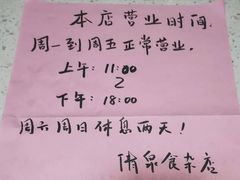 本店营业时间.
周一到周五正常营业.
上午: 11:00
2
下午: 18:00
周六周日休息两天!
清泉食杂店